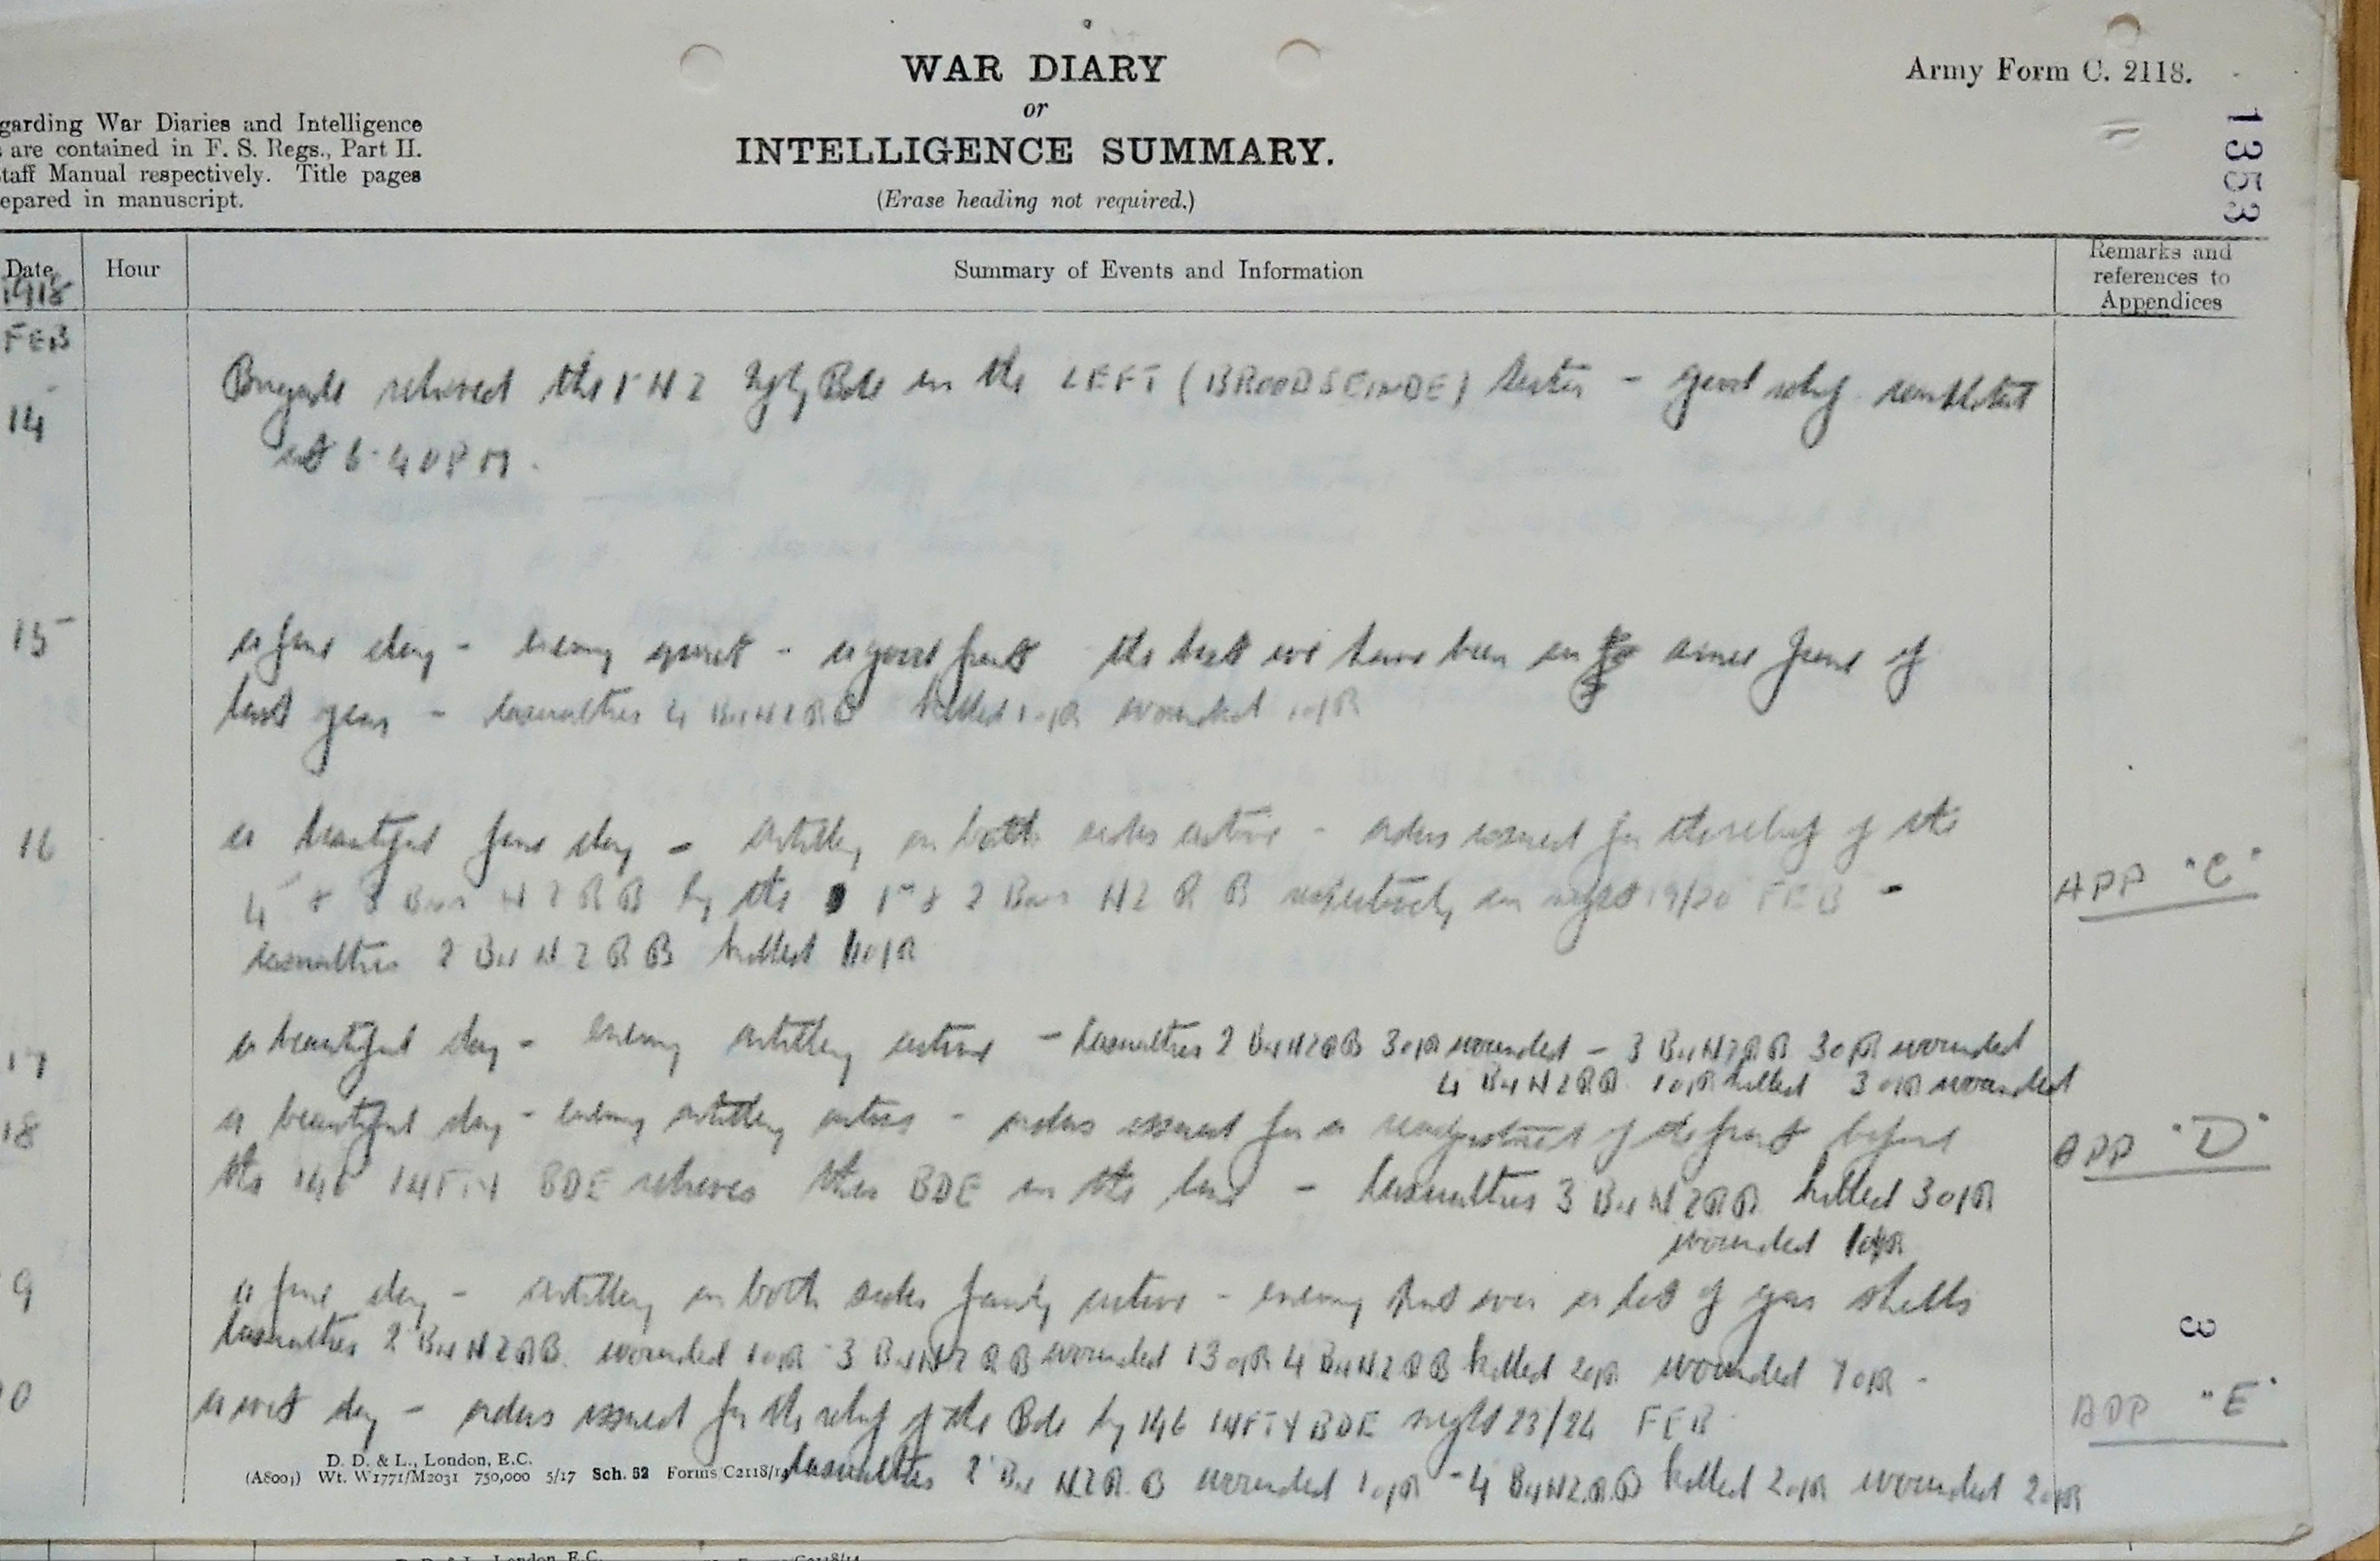 WAR DIARY
or
INTELLIGENCE SUMMARY.
(Erase heading not required.)
Army Form C. 2118.
1353
garding War Diaries and Intelligence
s are contained in F. S. Regs., Part II.
taff Manual respectively. Title pages
epared in manuscript.
Date Hour Summary of Events and Information Remarks and references to Appendices
1918
FEB
14 Brigade relieved the 1st N Z Bde in the LEFT (BROODSEINDE) sector - good relief completed
at 6.40 PM.
15 a fine day - enemy quiet - a good front the best we have been in since June of
last year - casualties 4 Bn N Z R B killed 1 o/R wounded 1 o/R
16 a beautiful fine day - artillery on both sides active - orders issued for the relief of the
4 & 3 Bns N Z R B by the 1st & 2 Bns N Z R B respectively on night 19/20 FEB - APP "C"
casualties 2 Bn N Z R B killed o/R
17 a beautiful day - enemy artillery active - Casualties 2 Bn N Z R B 3 o/R wounded - 3 Bn N Z R B 3 o/R wounded
4 Bn N Z R B 1 o/R killed 3 o/R wounded
18 a beautiful day - enemy artillery active - orders issued for a readjustment of the front before
the 146 INFTY BDE relieves this BDE in the line - Casualties 3 Bn N Z R B killed 3 o/R APP "D"
wounded o/R
9 a fine day - artillery on both sides fairly active - enemy put over a lot of gas shells
Casualties 2 Bn N Z R B. wounded 1 o/R 3 Bn N Z R B wounded 13 o/R 4 Bn N Z R B killed 2 o/R wounded 7 o/R -
0 a wet day - orders issued for the relief of the Bde by 146 INFTY BDE night 23/24 FEB APP "E"
Casualties 2 Bn N.Z.R.B wounded 1 o/R - 4 Bn N.Z.R.B killed 2 o/R wounded 2 o/R
3
D. D. & L., London, E.C.
(A8001) Wt. W1771/M2031 750,000 5/17 Sch. 52 Forms C2118/14